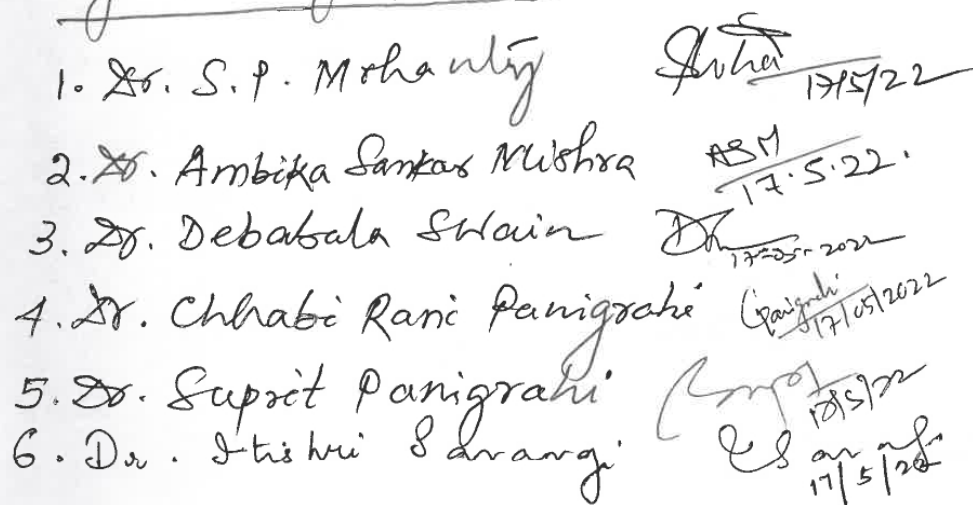 1. Dr. S.P. Mohanty 17/5/22
2. Dr. Ambika Sankar Mishra ASM 17.5.22.
3. Dr. Debabala Swain 17-05-2022
4. Dr. Chhabi Rani Panigrahi CPanigrahi 17/05/2022
5. Dr. Suprit Panigrahi 17/5/22
6. Dr. Itishri Sarangi ISarangi 17/5/22